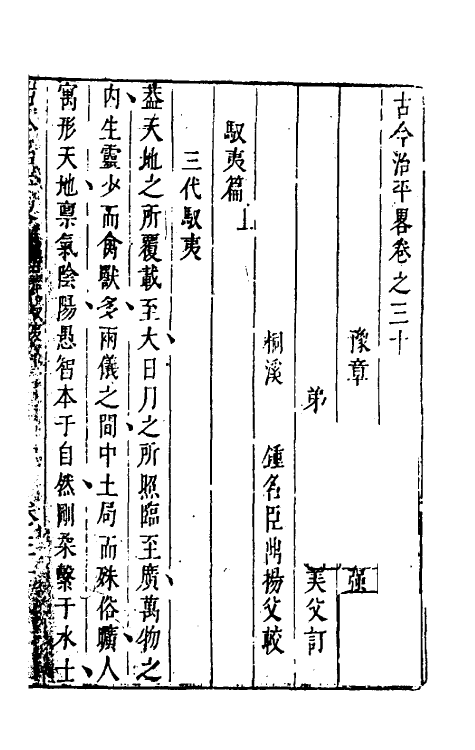 古今治平畧卷之三十
豫章　　　強
弟　　　美父訂
桐溪　鍾名臣　揚父較
馭夷篇上
三代馭夷
葢天地之所覆載至大日月之所照臨至廣萬物之
内生靈少而禽獸多兩儀之間中土局而殊俗曠人
寓形天地禀氣陰陽愚智本于自然剛柔繫于水土